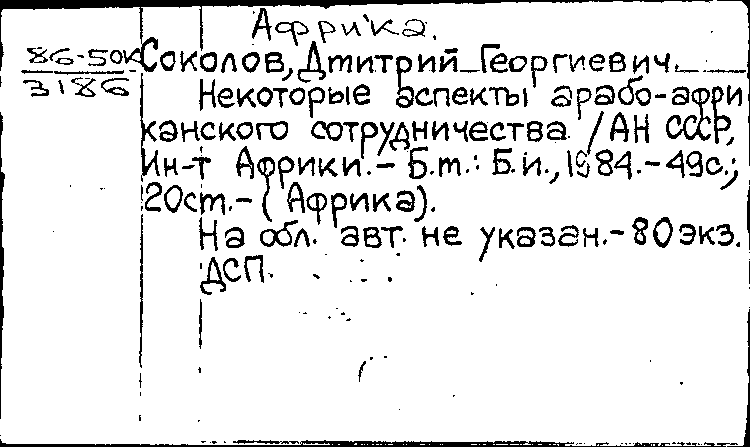 Африка.
86-50К
3186
Соколов, Дмитрий Георгиевич.
Некоторые аспекты арабо-афри
канского сотрудничества /АН СССР,
Ин-т Африки.- Б.м.: Б.и., 1984.-49с.;
20см.- ( Африка).
На обл. авт. не указан.- 80 экз.
ДСП.